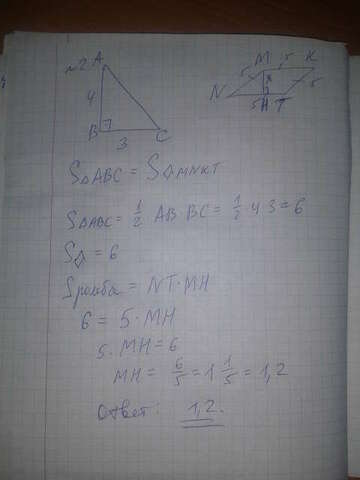 №2 A
4
B
C
3
M 5 K
5
x
5
N
5 H T
S△ABC = S◇MNKT
S△ABC = 1/2 AB BC = 1/2 · 4 3 = 6
S◇ = 6
Sромба = NT · MH
6 = 5 · MH
5 · MH = 6
MH = 6/5 = 1 1/5 = 1,2
Ответ: 1,2.